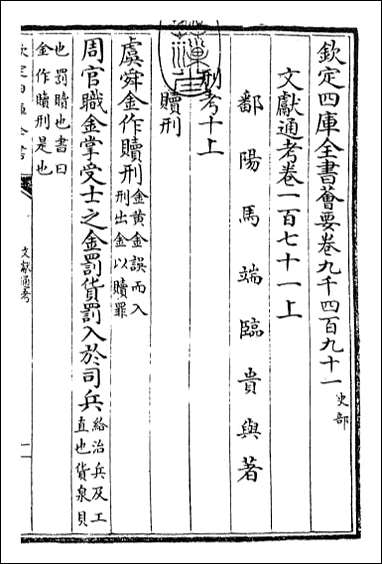 欽定四庫全書薈要卷九千四百九十一 史部
文獻通考卷一百七十一上
鄱陽馬端臨貴與著
刑考十上
贖刑
虞舜金作贖刑 金黃金誤而入
刑出金以贖罪
周官職金掌受士之金罰貨罰入於司兵 給治兵及工
直也貨泉貝
也罰贖也書曰
金作贖刑是也
文獻通考
一